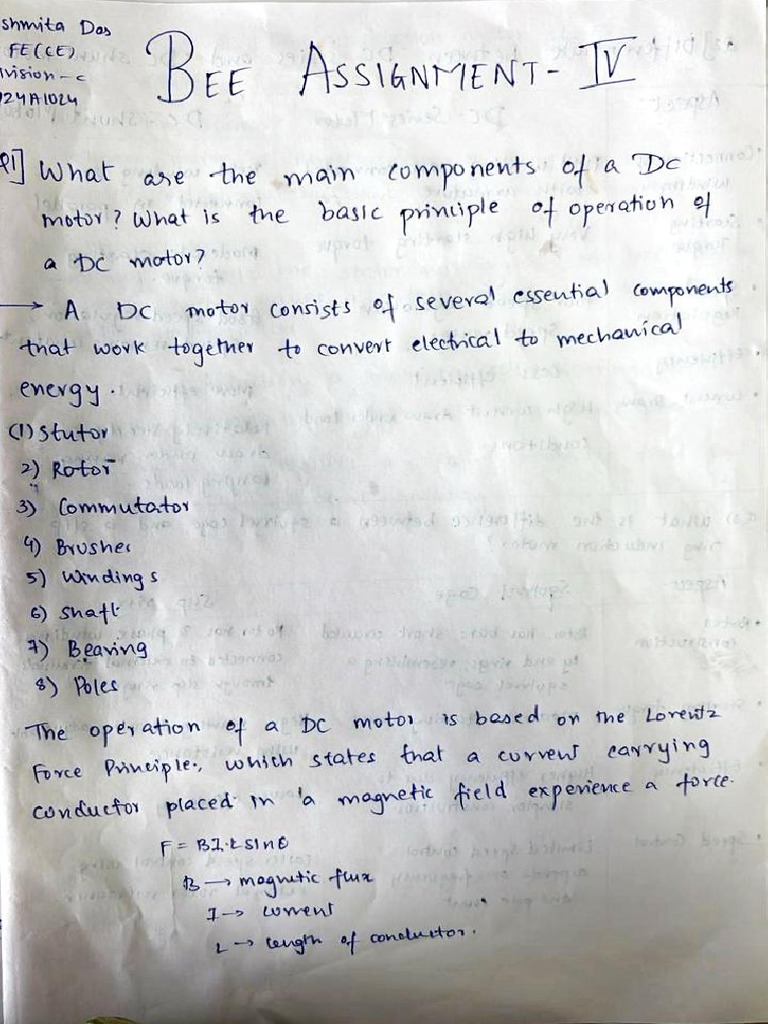 shmita Das
FE(CE)
ivision - c
24A1024
BEE ASSIGNMENT - IV
Q1] What are the main components of a DC
motor? What is the basic principle of operation of
a DC motor?
→ A DC motor consists of several essential components
that work together to convert electrical to mechanical
energy.
(1) Stutor
2) Rotor
3) Commutator
4) Brushes
5) Windings
6) Shaft
7) Bearing
8) Poles
The operation of a DC motor is based on the Lorentz
Force Principle, which states that a current carrying
conductor placed in a magnetic field experience a force.
F = BI.L sinθ
B → magnetic flux
I → current
L → length of conductor.